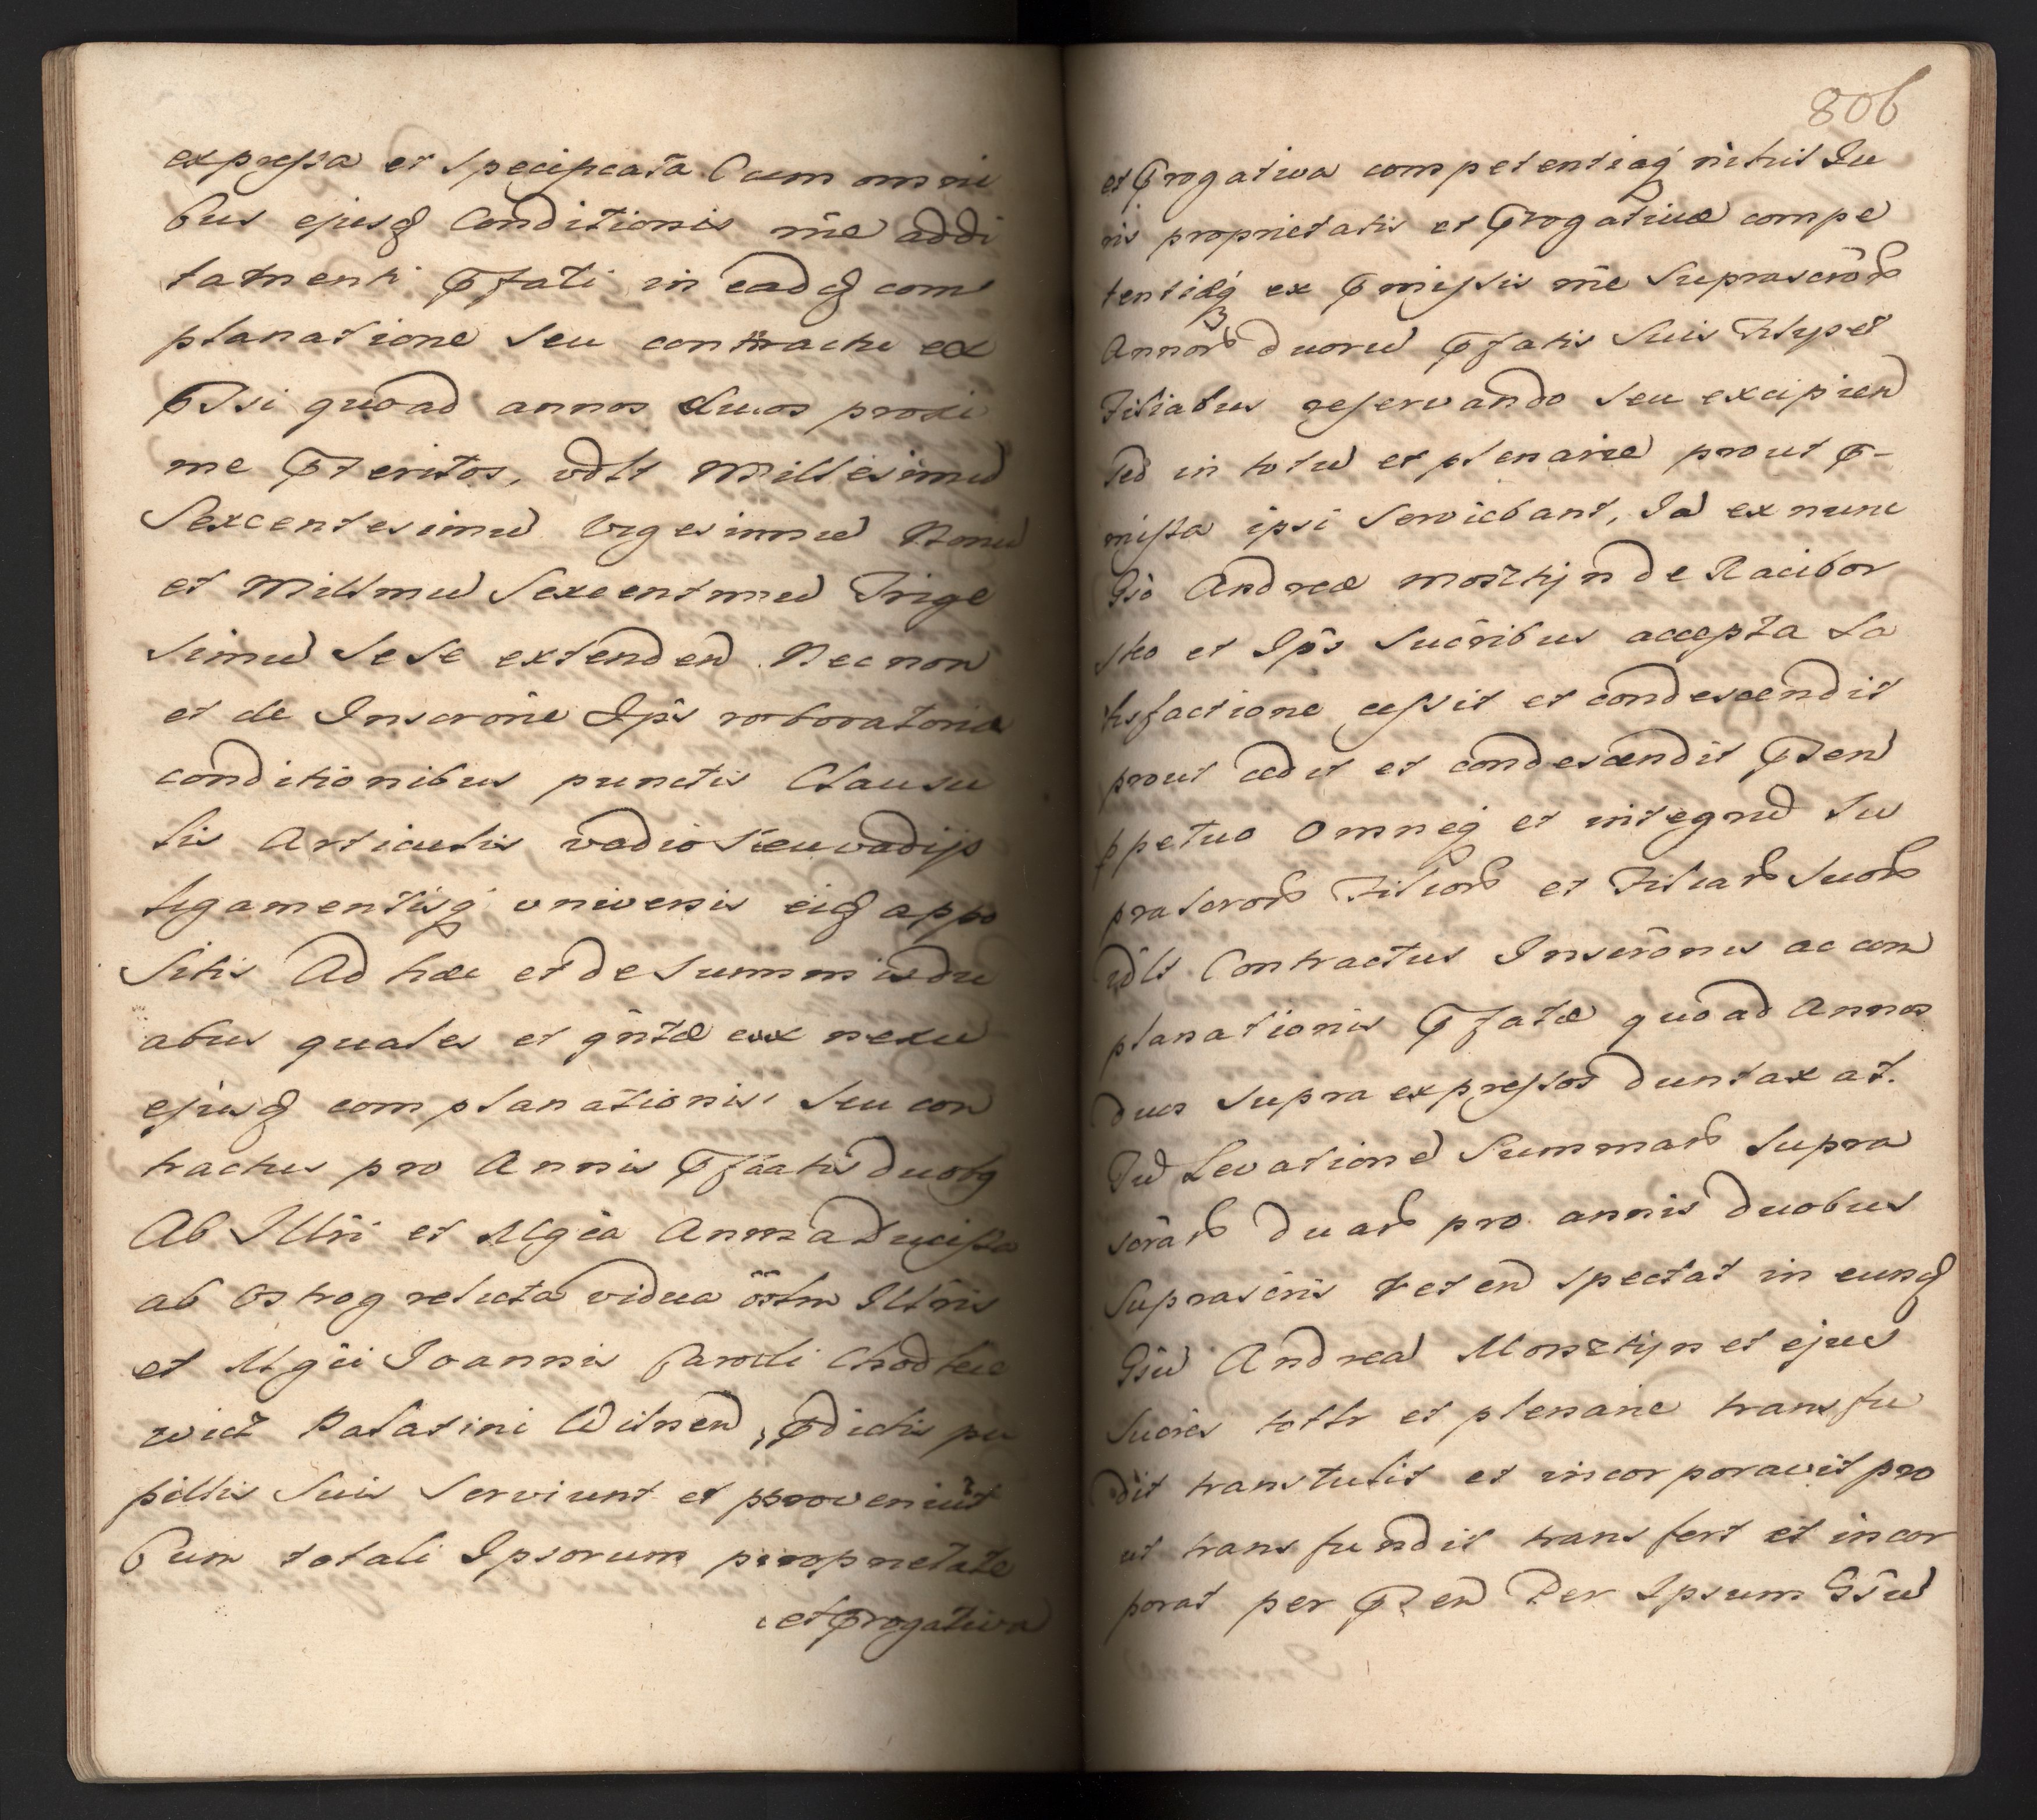 expressa et specificata Cum omni
bus ejusq Conditionis rne addi
tamenti Pfati in eadq com
planatione seu contractu ex
PTsi quoad annos duos proxi
me Pteritos, vdlt Millesimu
Sexcentesimu Vigesimu Nonu
et Millmu Sexcentmu Trige
simu sese extenden Necnon
et de Inscrone Ips roboratoria
conditionibus punctis Clausu
lis Articulis vadio seu vadijs
ligamentisq universis eidq appo
sitis Ad hæc et de summis du
abus quales et qntæ ex nexu
ejusq complanationis seu con
tractus pro Annis Pfatis duobq
Ab Illri et Mgca Anna Ducissa
ab Ostrog relicta vidua olim Illris
et Mgci Joannis Caroli Chodkie
wicz Palatini Wilnen, Pdictis pu
pillis suis serviunt et proveniut
Cum totali Ipsorum proprietate
et Progativa
806
et Progativa competentiaq nihil Iu
ris proprietatis et Progativæ compe
tentiæq ex Pmissis rne suprascror
Annor duoru Pfatis suis
Filiabus reservando seu excipien
Sed in totu et plenarie prout P-
missa ipsi serviebant, Id ex nunc
Gso Andreæ Morsztyn de Racibor
sko et Ips sucribus accepta sa
tisfactione cessit et condescendit
prout cedit et condescendit PTen
ppetuo Omneq et integru Iu
prascror Filior et Filiar suor
vdlt Contractus Inscronis ac com
planationis Pfatæ quoad Annos
duos supra expressos duntaxat.
Tu Levatione Summar supra
scrar duar pro annis duobus
suprascris reten spectat in eunq
Gsu Andrea Morsztyn et ejus
sucres totlr et plenarie transfu
dit transtulit et incorporavit pro
ut transfundit transfert et incor
porat per PTen Per Ipsum Gsu